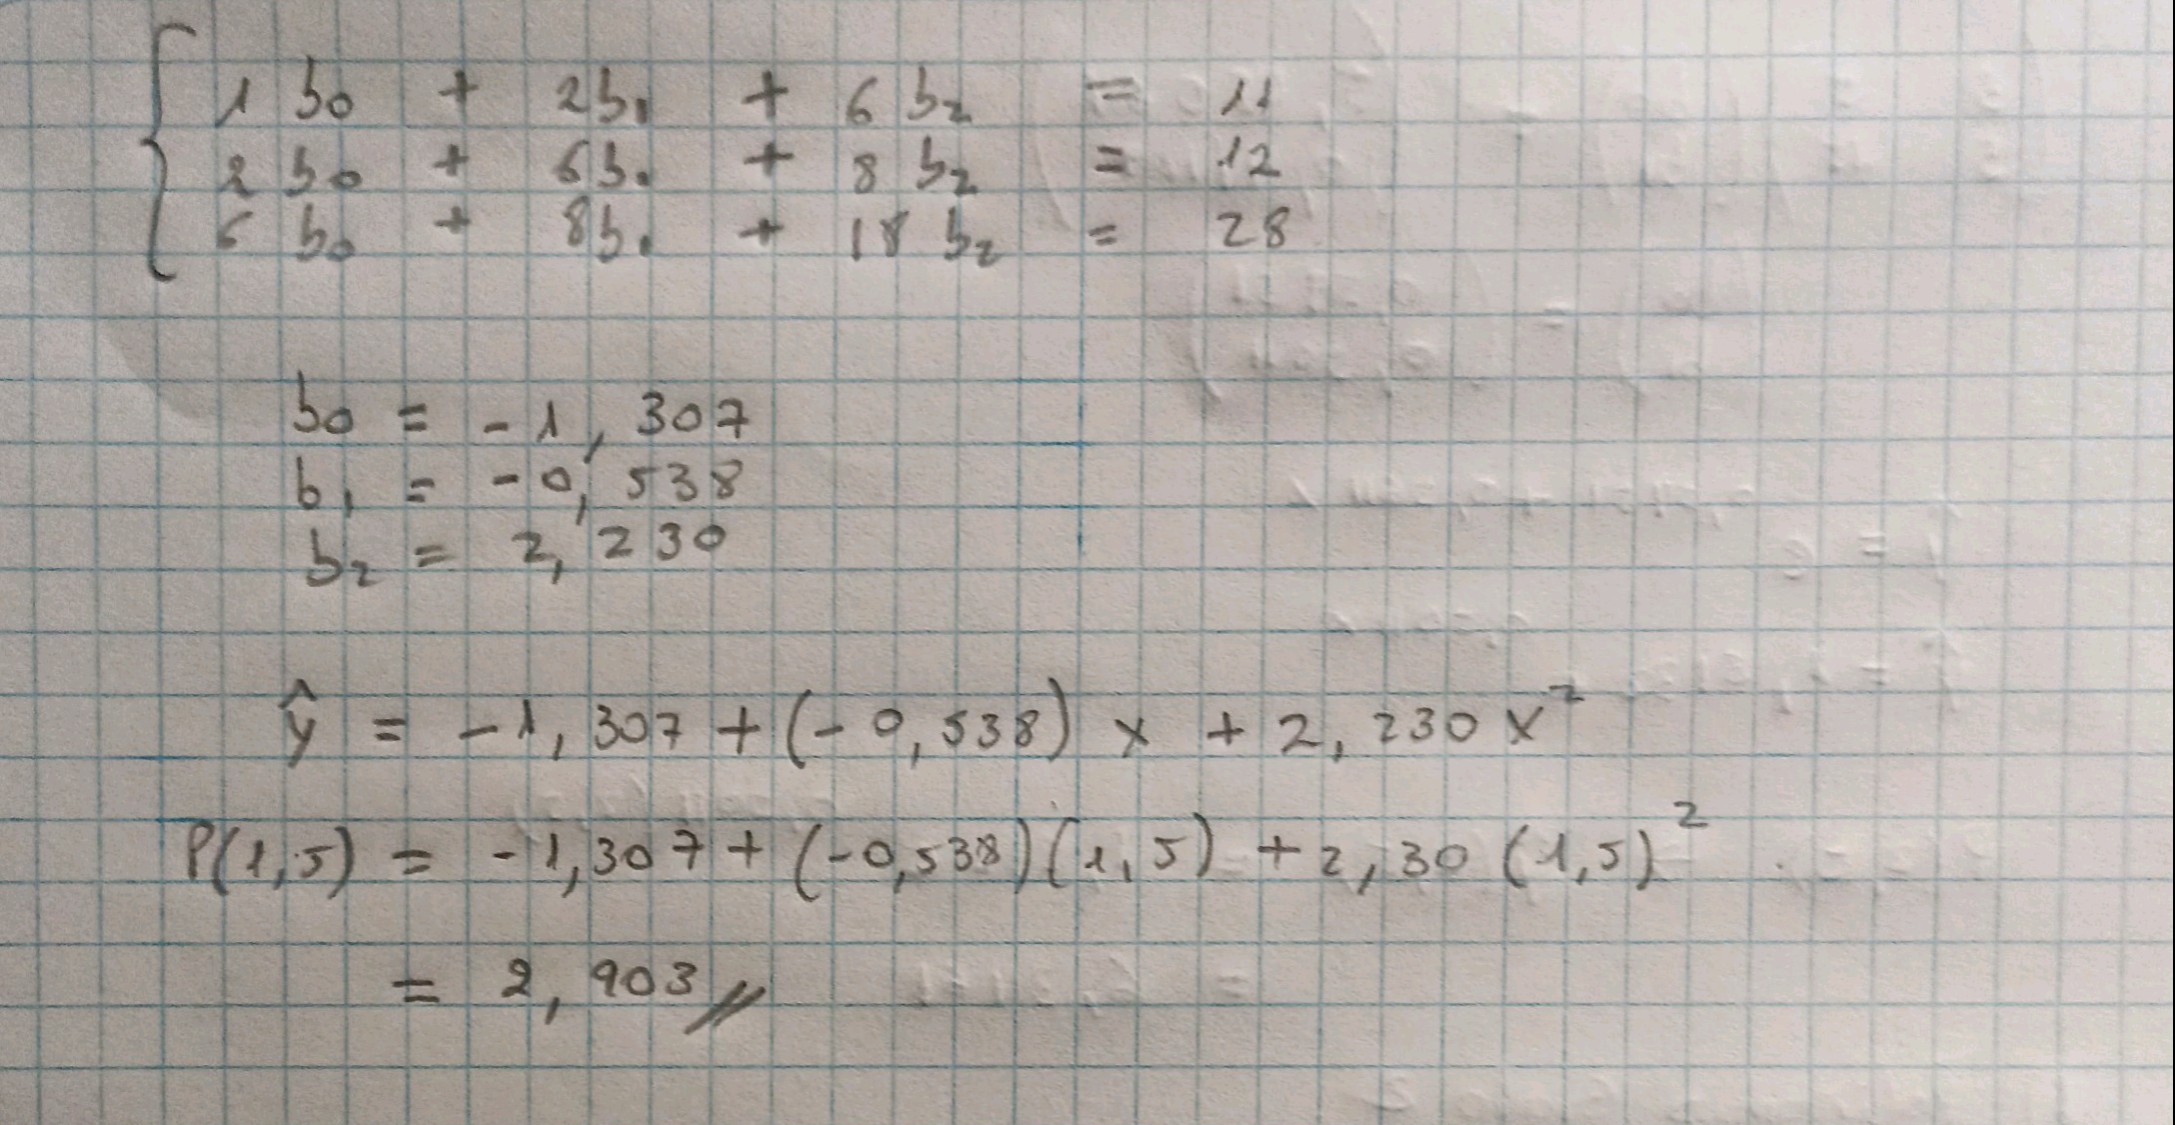 1 b0 + 2b1 + 6 b2 = 11
2 b0 + 6b1 + 8 b2 = 12
6 b0 + 8b1 + 18 b2 = 28
b0 = -1,307
b1 = -0,538
b2 = 2,230
ŷ = -1,307 + (-0,538) x + 2,230 x²
P(1,5) = -1,307 + (-0,538)(1,5) + 2,30 (1,5)²
= 2,903 //